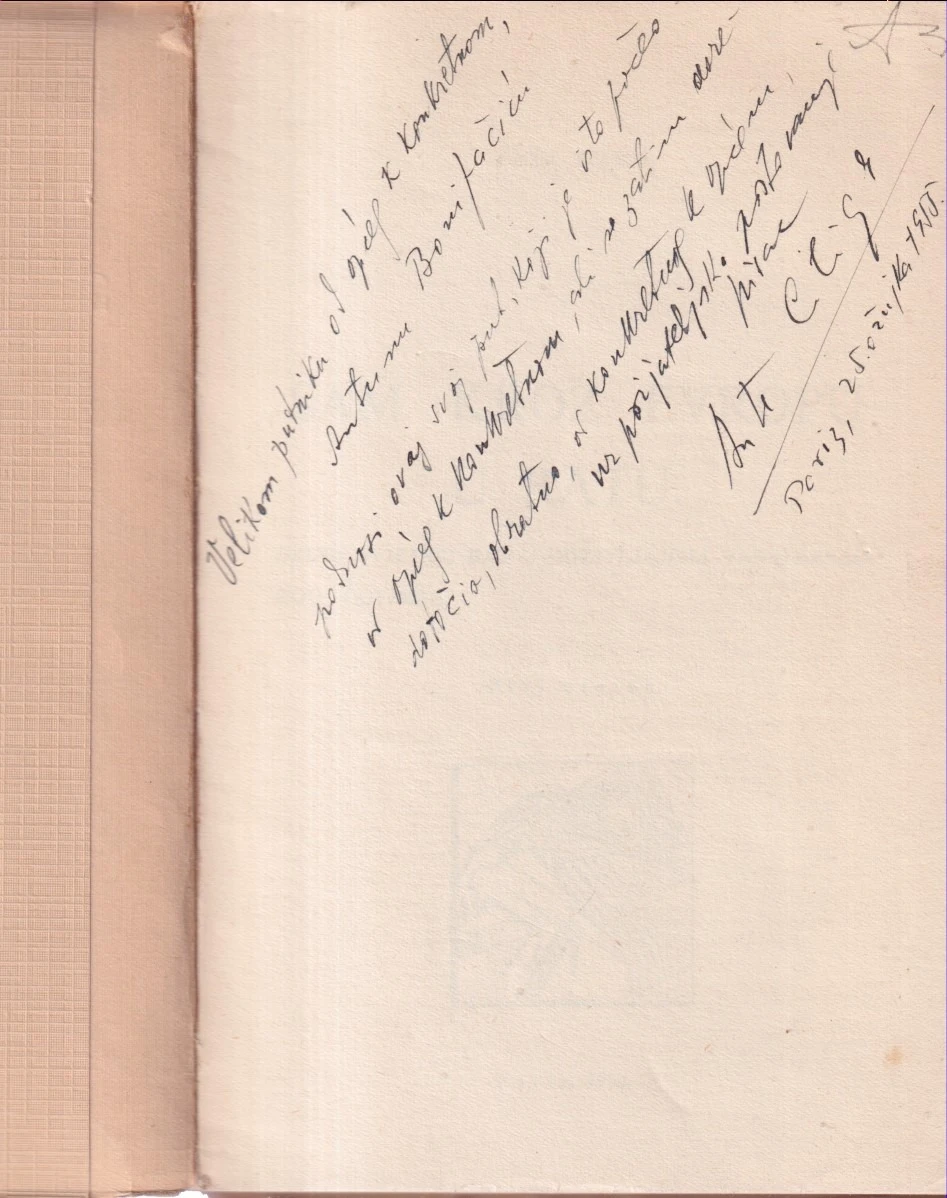 Velikom putniku od općeg k konkretnom,
Antunu Bonifačiću
podnosi ovaj svoj put, koji je isto počeo
od općeg k konkretnom, ali se zatim
obratno, od konkretnog k općem,
uz prijateljsko poštovanje
pisac
Ante Ciliga
Pariz, 25. ožujka 1950.